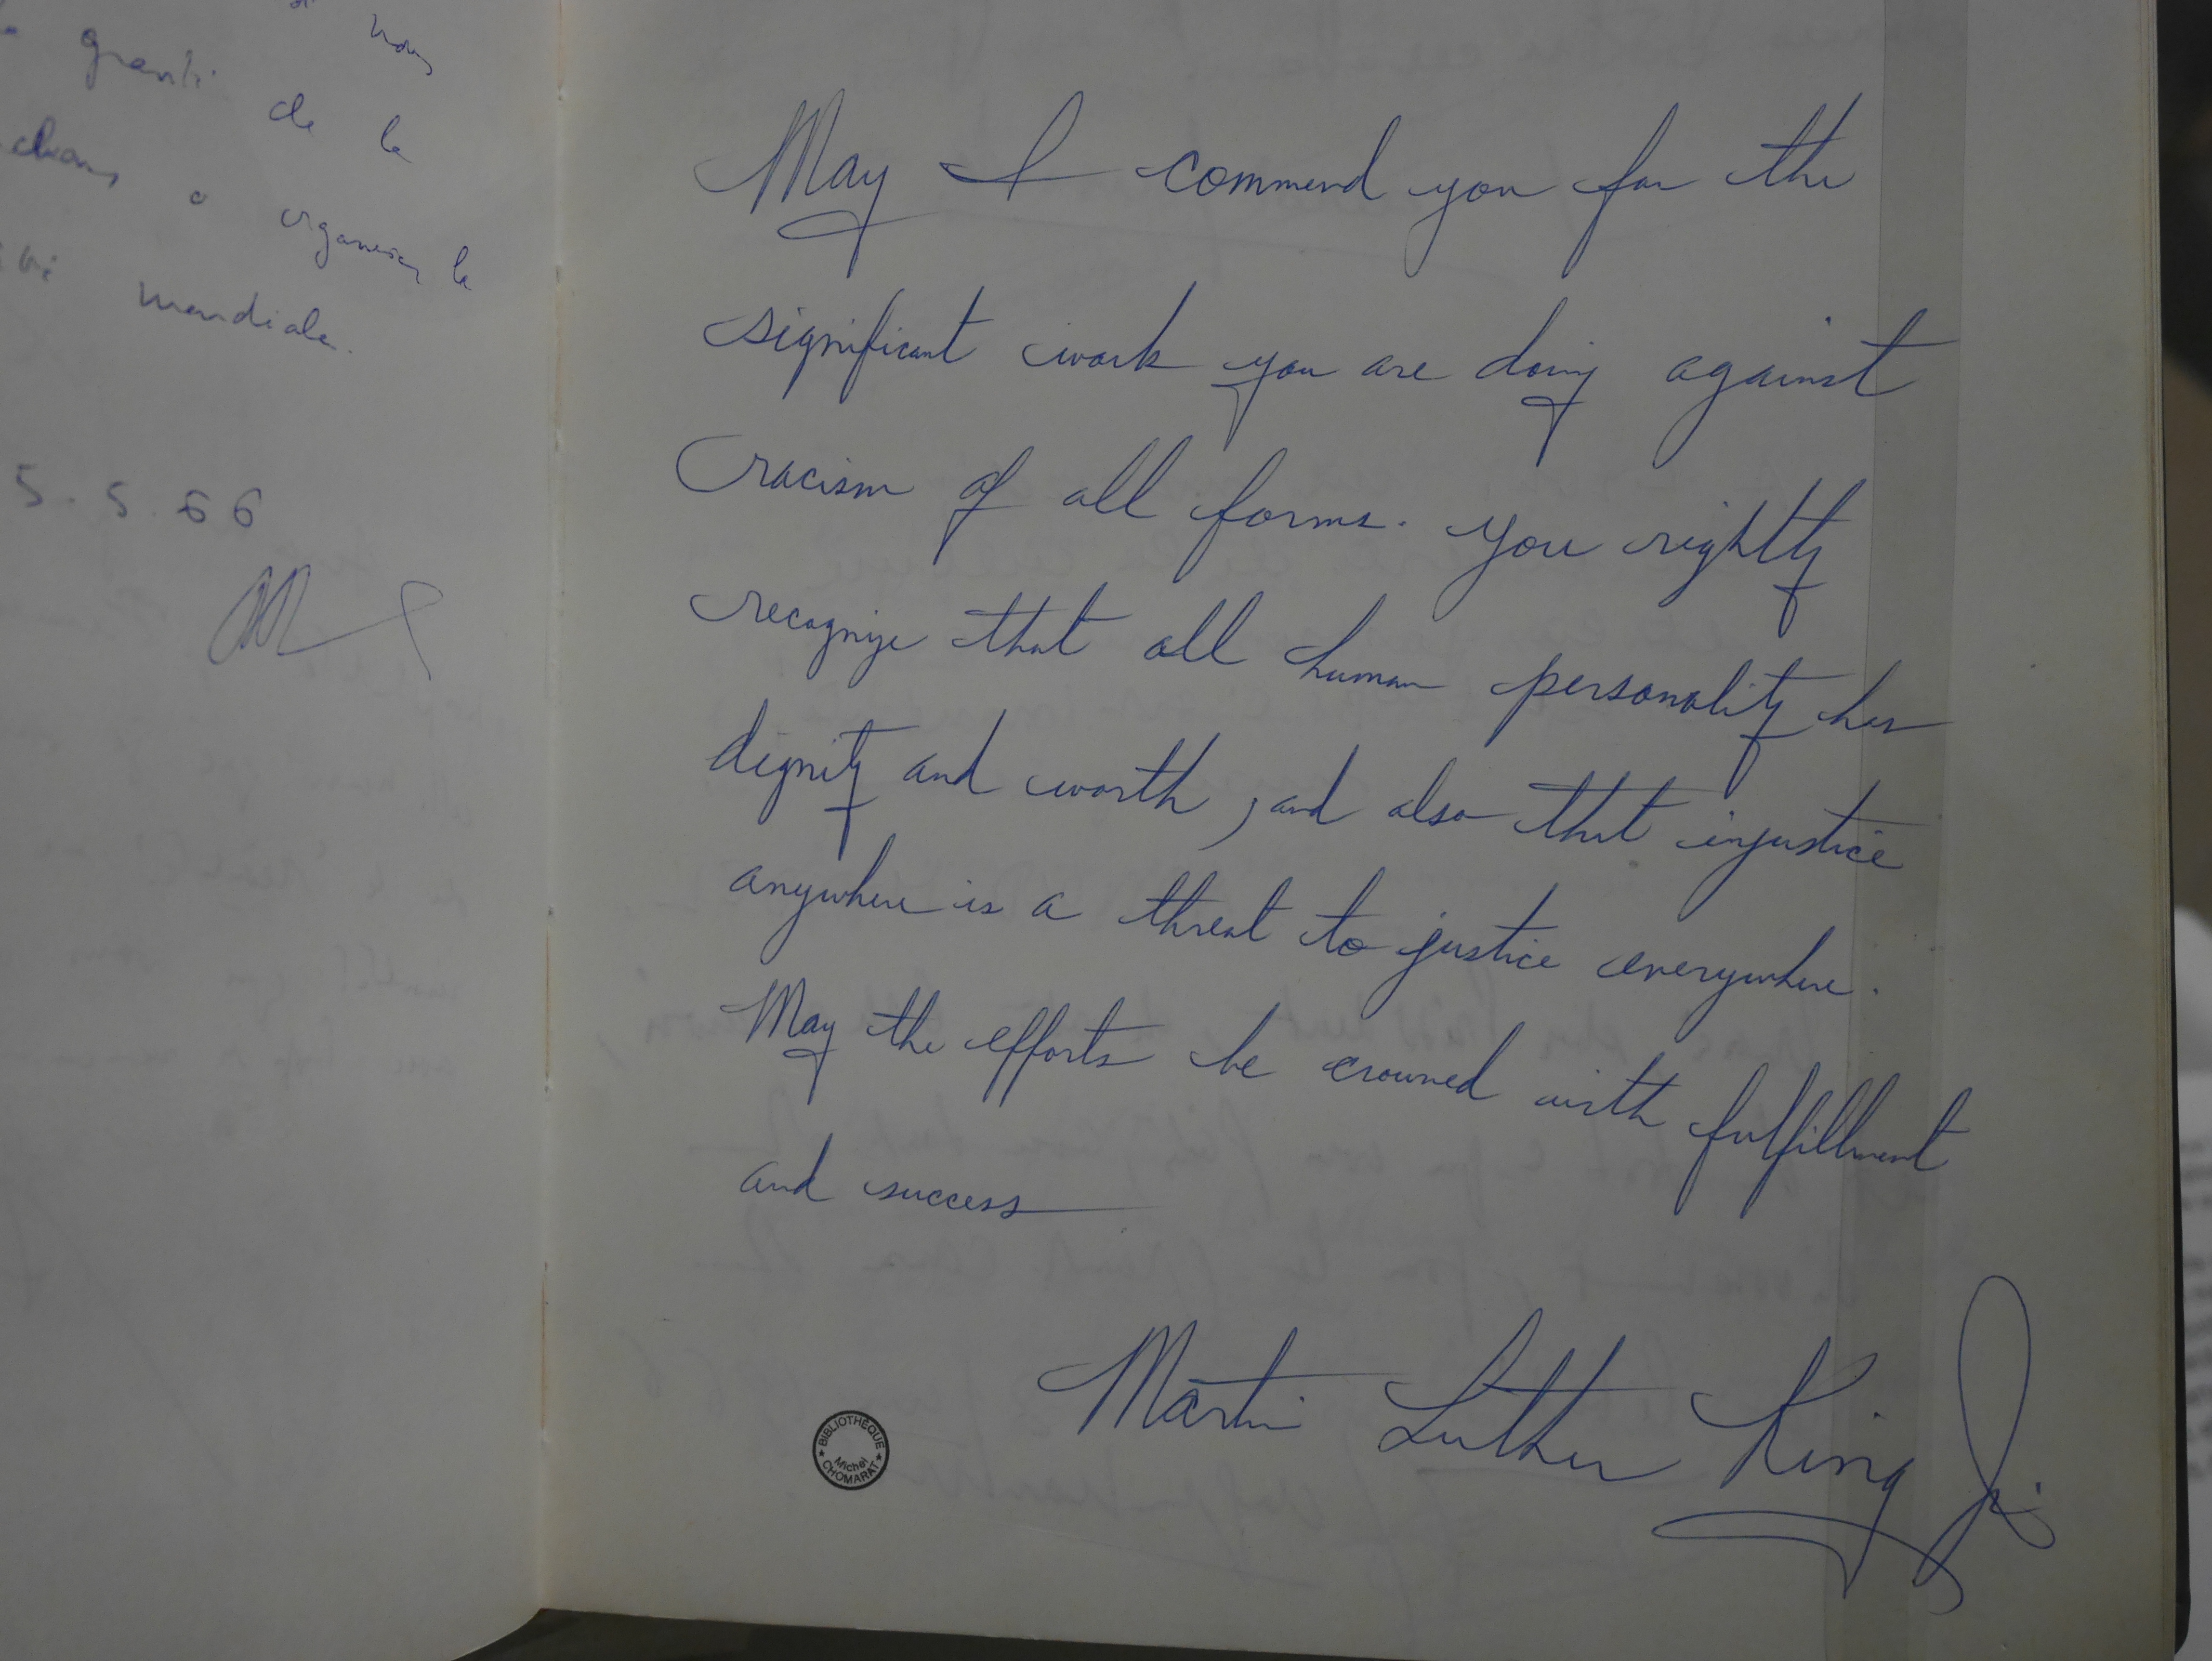 de la
a organiser la
mondiale.
5.5.66
May I commend you for the
significant work you are doing against
racism of all forms. You rightly
recognize that all human personality has
dignity and worth, and also that injustice
anywhere is a threat to justice everywhere.
May the efforts be crowned with fulfillment
and success
Martin Luther King Jr.
BIBLIOTHÈQUE
Michel
CHOMARAT